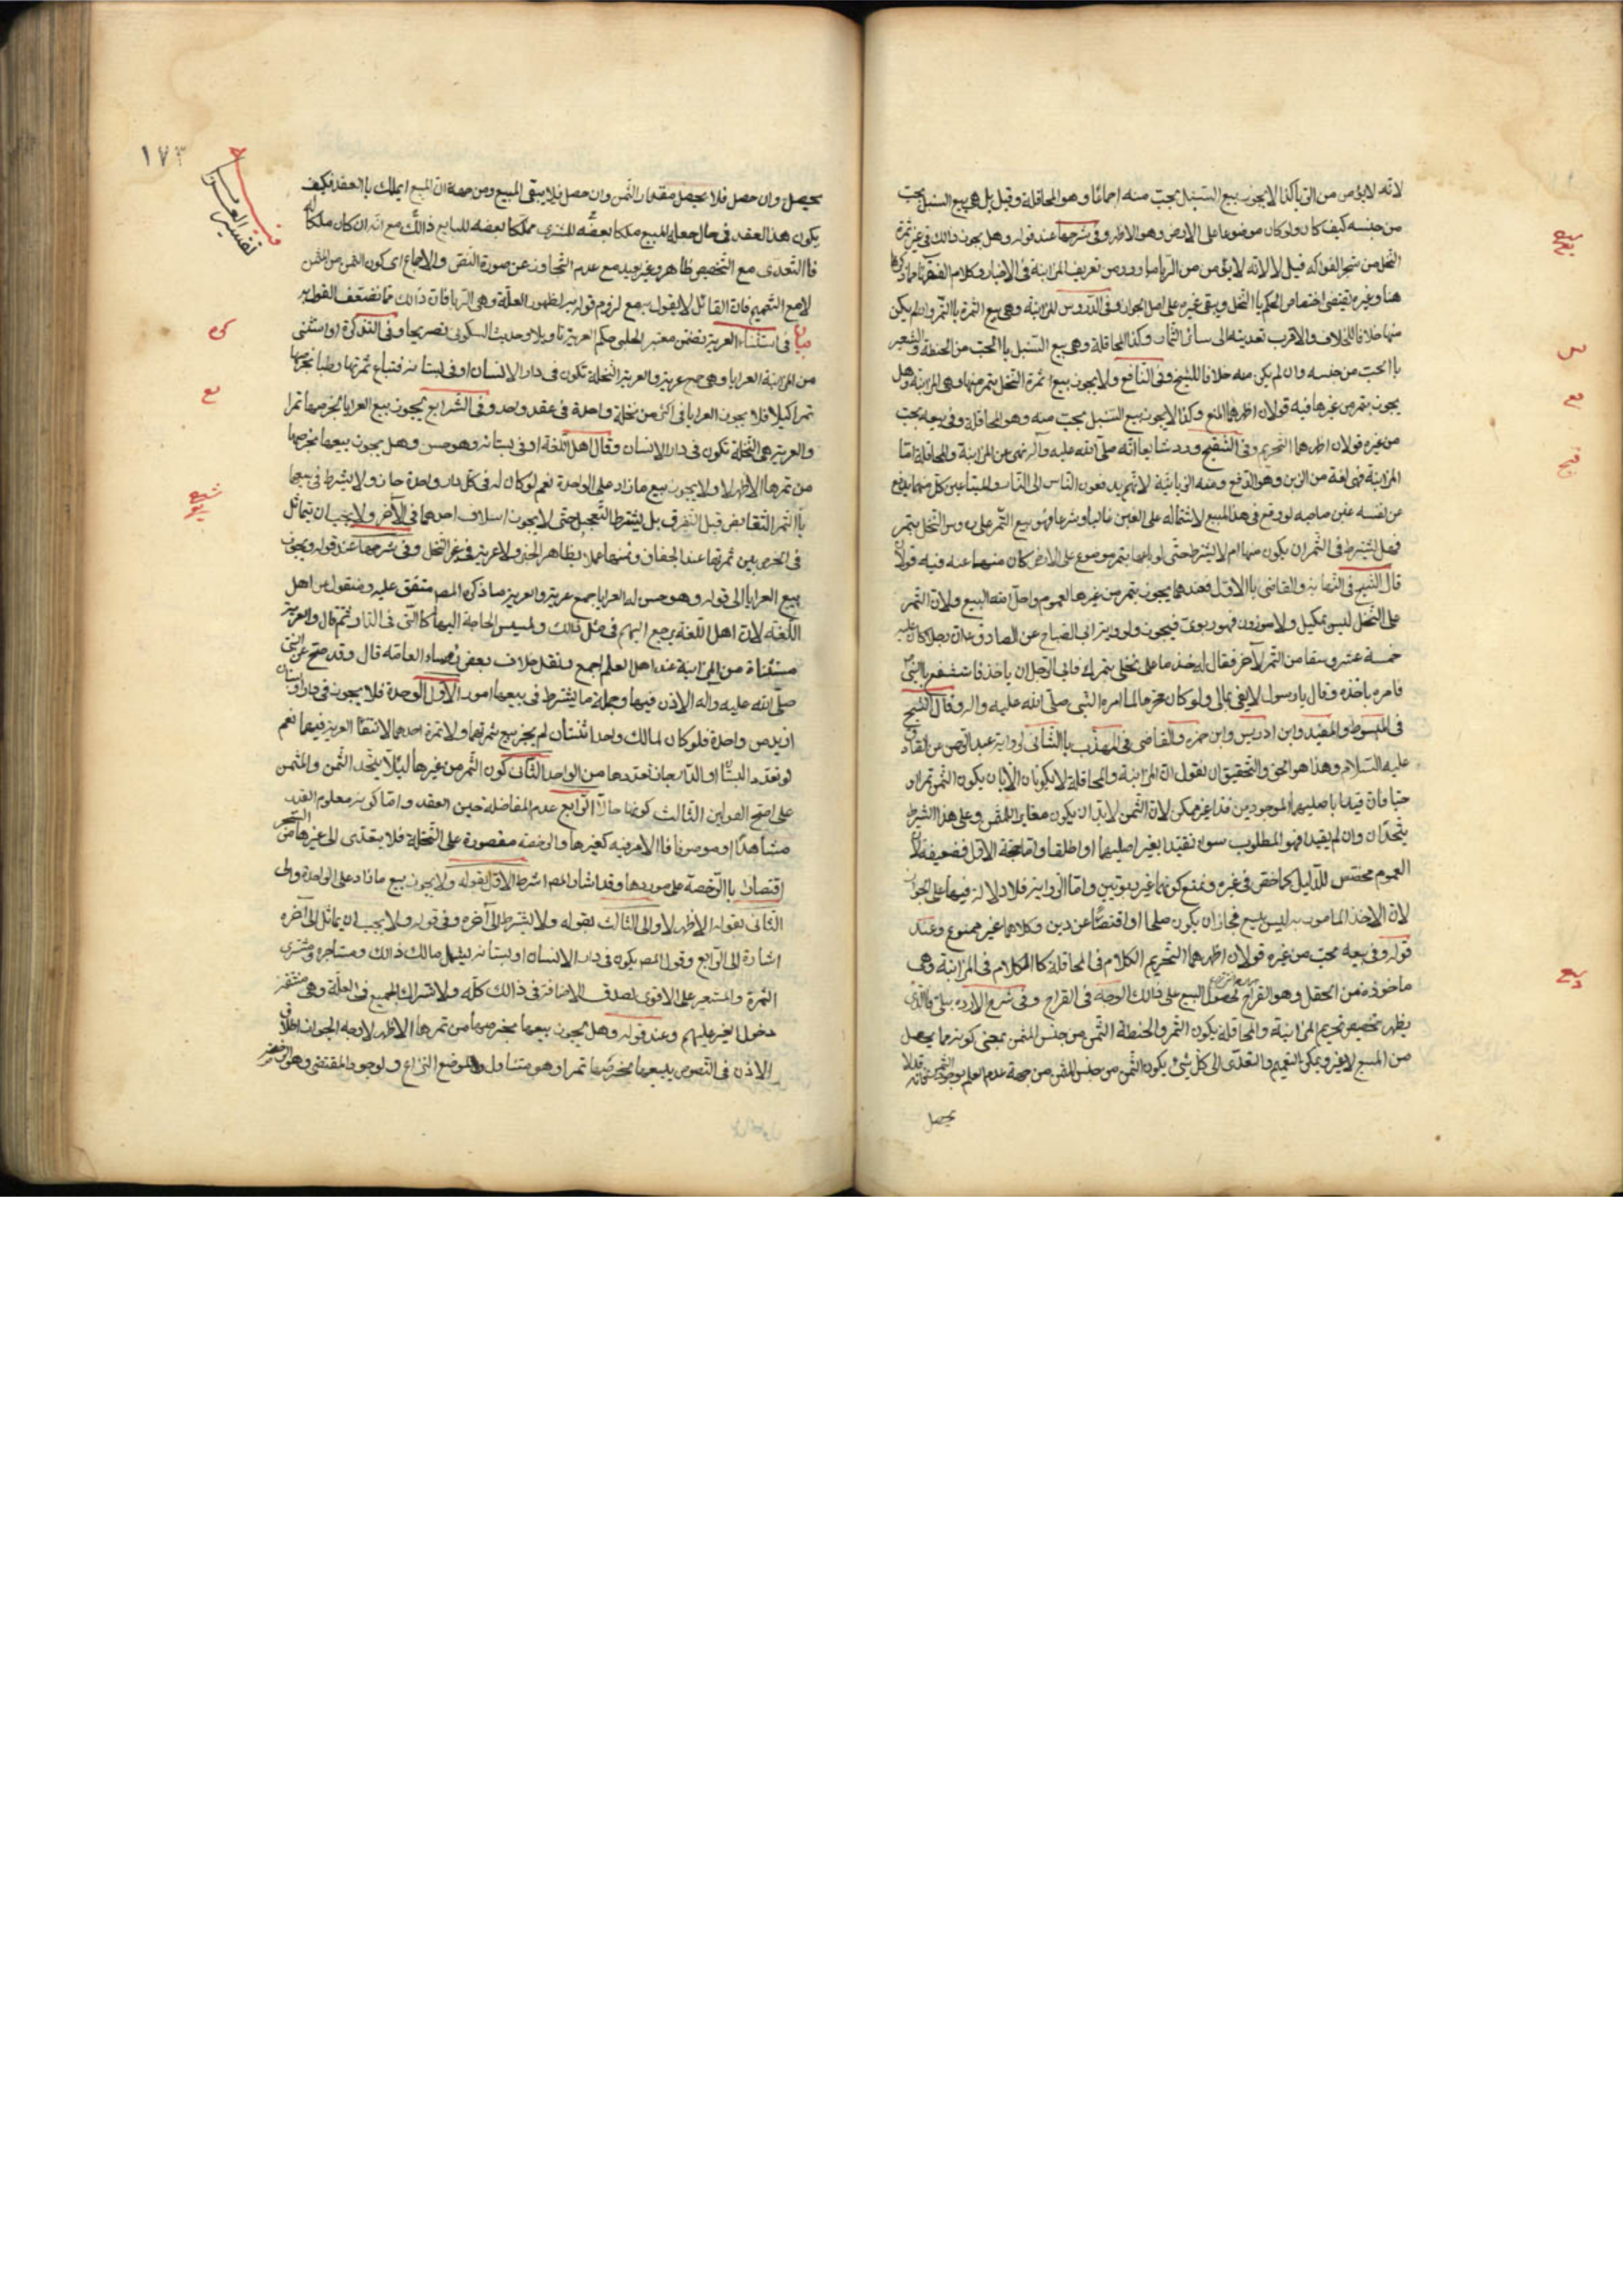 لانه لا يؤمن من الربا وكذا لا يجوز بيع السنبل بحب منه اجماعا وهو المحاقلة وقيل بل هي بيع السنبل بحب
من جنسه كيف كان ولو كان موضوعا على الارض وهو الاظهر وفي شرحها عند قوله وهل يجوز ذلك في غير ثمرة
النخل من شجر الفواكه قيل لا لانه لا يؤمن من الربا ما ورد من تعريف المزابنة في الاخبار وكلام الفقهاء
هنا وغيره يقتضي اختصاص الحكم بالنخل ويبقى غيره على اصل الجواز وفي الدروس المزابنة وهي بيع الثمرة بالتمر وان لم يكن
منها خلافا للخلاف والاقرب تعديته الى سائر الثمار وكذا المحاقلة وهي بيع السنبل بالحب من الحنطة والشعير
بالحب من جنسه وان لم يكن منه خلافا للشيخ وفي النافع ولا يجوز بيع ثمرة النخل بتمر منها وهي المزابنة وهل
يجوز بتمر من غيرها فيه قولان اظهرهما المنع وكذا لا يجوز بيع السنبل بحب منه وهو المحاقلة وفي بيعه بحب
من غيره قولان اظهرهما التحريم وفي التنقيح ورد شايعا انه صلى الله عليه وآله نهى عن المزابنة والمحاقلة اما
المزابنة فهي لغة من الزبن وهو الدفع ومنه الزبانية لانهم يدفعون الناس الى النار والمتبايعين كل منهما يدفع
عن نفسه غبن صاحبه لو وقع في هذا المبيع لاشتماله على الغبن غالبا وشرعا فهو بيع الثمر على رؤس النخل بتمر
فهل يشترط في الثمر ان يكون منها ام لا يشترط حتى لو باعها بتمر موضوع على الارض كان منهيا عنه فيه قولان
قال الشيخ في النهاية والقاضي بالاول فعندهما يجوز بتمر من غيرها لعموم واحل الله البيع ولان الثمر
على النخل ليس بمكيل ولا موزون فهو ربوي فيجوز ولرواية ابي الصباح عن الصادق ع ان رجلا كان عليه
خمسة عشر وسقا من التمر لآخر فقال له خذ ما على نخلي بتمرك فابى الرجل ان ياخذ فاستشفع بالنبي
فامره باخذه وقال يا رسول لا يفي بمالي ولو كان محرما لما امره النبي صلى الله عليه واله وقال الشيخ
في المبسوط والمفيد وابن ادريس وابن حمزه والقاضي في المهذب بالثاني لرواية عبد الرحمن عن الصادق
عليه السلام وهذا هو الحق والتحقيق ان نقول ان المزابنة والمحاقلة لا يكونان الا بان يكون الثمن تمرا او
حبا فان قيدا باصليهما الموجودين فذا غير ممكن لان الثمن لا بد ان يكون مغايرا للمثمن وعلى هذا الشرط
يتحدان وان لم يقيدا فهو المطلوب سواء تقيدا بغير اصليهما او اطلقا واما حجة الاول فضعيفة لان
العموم مخصص للدليل كما خص في غيره ونمنع كونهما غير ربويين واما الرواية فلا دلالة فيها على الجواز
لان الاخذ المامور به ليس ببيع فجاز ان يكون صلحا او اقتضاء عن دين وكلاهما غير ممنوع وعند
قوله وفي بيعه بحب من غيره قولان اظهرهما التحريم الكلام في المحاقلة كالكلام في المزابنة وهي
ماخوذة من الحقل وهو القراح لحصول البيع على ذلك الوجه في القراح وفي شرح الارد بيلي فالذي
يظهر تخصيص تحريم المزابنة والمحاقلة بكون التمر والحنطة الثمن من جنس المثمن بمعنى كونه مما يحصل
من المبيع لا غير ويمكن التعميم والتعدي الى كل شئ ويكون الثمن من جنس المثمن من جهة عدم العلم بوجود الثمن
يحصل
١٧٣
تفسير العرية
يحصل وان حصل فلا يحصل مقدار الثمن وان حصل فلا يبقى المبيع ومن جهة ان المبيع انما يملك بالعقد فكيف
يكون هذا العقد في حال جعله المبيع ملكا بعضه للمشتري مملكا بعضه للبايع ذلك مع انه ان كان ملكا له
فالتعدي مع التخصيص ظاهر وغير بعيد مع عدم التجاوز عن صورة النص والاجماع اي كون الثمن من المثمن
لا مع التعميم فان القائل لا يقول به مع لزوم قوله به لظهور العلة وهي الربا فان ذلك مما يضعف القول به
في استثناء العرية تضمن معتبر الحلبي حكم العرية تاويلا وحديث السكوني تصريحا وفي التذكرة او استثنى
من المزابنة العرايا وهي جمع عرية والعرية النخلة تكون في دار الانسان او في بستانه فتباع ثمرتها رطبا بخرصها
تمرا كيلا فلا يجوز العرايا في اكثر من نخلة واحدة في عقد واحد وفي الشرايع يجوز بيع العرايا بخرصها تمرا
والعرية هي النخلة تكون في دار الانسان وقال اهل اللغة او في بستانه وهو حسن وهل يجوز بيعها بخرصها
من تمرها الاظهر لا ولا يجوز بيع ما زاد على الواحدة نعم لو كان له في كل دار واحدة جاز ولا يشترط في بيعها
بالتمر التقابض قبل التفرق بل يشترط التعجيل حتى لا يجوز اسلاف احدهما في الآخر ولا يجب ان يتماثل
في الخرص بين ثمرتها عند الجفاف وثمنها عملا بظاهر الخبر ولا عرية في غير النخل وفي شرحها عند قوله ويجوز
بيع العرايا الى قوله وهو حسن له العرايا جمع عرية والعرية ما ذكره المص متفق عليه ومنقول من اهل
اللغة لان اهل اللغة يرجع اليهم في مثل ذلك ولمسيس الحاجة اليها كالتي في الدار ثم قال والعرية
مستثناة من المزابنة عند اهل العلم اجمع ونقل خلاف بعض فقهاء العامة قال وقد صح عن النبي
صلى الله عليه واله الاذن فيها وجملة ما يشترط في بيعها امور الاول الوحدة فلا يجوز في دار او بستان
ازيد من واحدة فلو كان لمالك واحد اثنتان لم يجز بيع ثمرتهما ولا ثمرة احدهما لانتفاء العرية فيهما نعم
لو تعدد البستان او الدار جاز تعددها من الواحد الثاني كون الثمر من غيرها لئلا يتحد الثمن والمثمن
على اصح القولين الثالث كونها حالا الرابع عدم المفاضلة حين العقد واما كونه معلوم القدر
مشاهدا او موصوفا فالامر فيه كغيرها والرخصة مقصورة على النخلة فلا يتعدى الى غيرها من الشجر
اقتصارا بالرخصة على موردها وقد اشار المص اشرط الاول بقوله ولا يجوز بيع ما زاد على الواحدة والى
الثاني بقوله الاظهر لا والى الثالث بقوله ولا يشترط الى آخره وفي قوله ولا يجب ان يتماثل الى آخره
اشارة الى الرابع وقول المص يكون في دار الانسان او بستانه يشمل مالك ذلك ومستاجره ومشترى
الثمرة والمستعير على الاقوى لصدق الاضافة في ذلك كله ولاشتراك الجميع في العلة وهي مشقة
دخول الغير عليهم وعند قوله وهل يجوز بيعها بخرصها من تمرها الاظهر لا وجه الجواز اطلاق
الاذن في النصوص ببيعها بخرصها تمرا وهو متناول لموضع النزاع ولوجود المقتضي وهو الرخصة